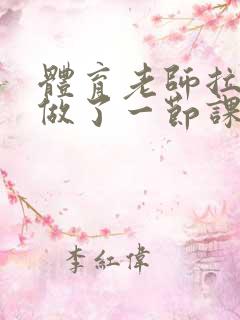 體育老師拉
做了一節課
李紅偉